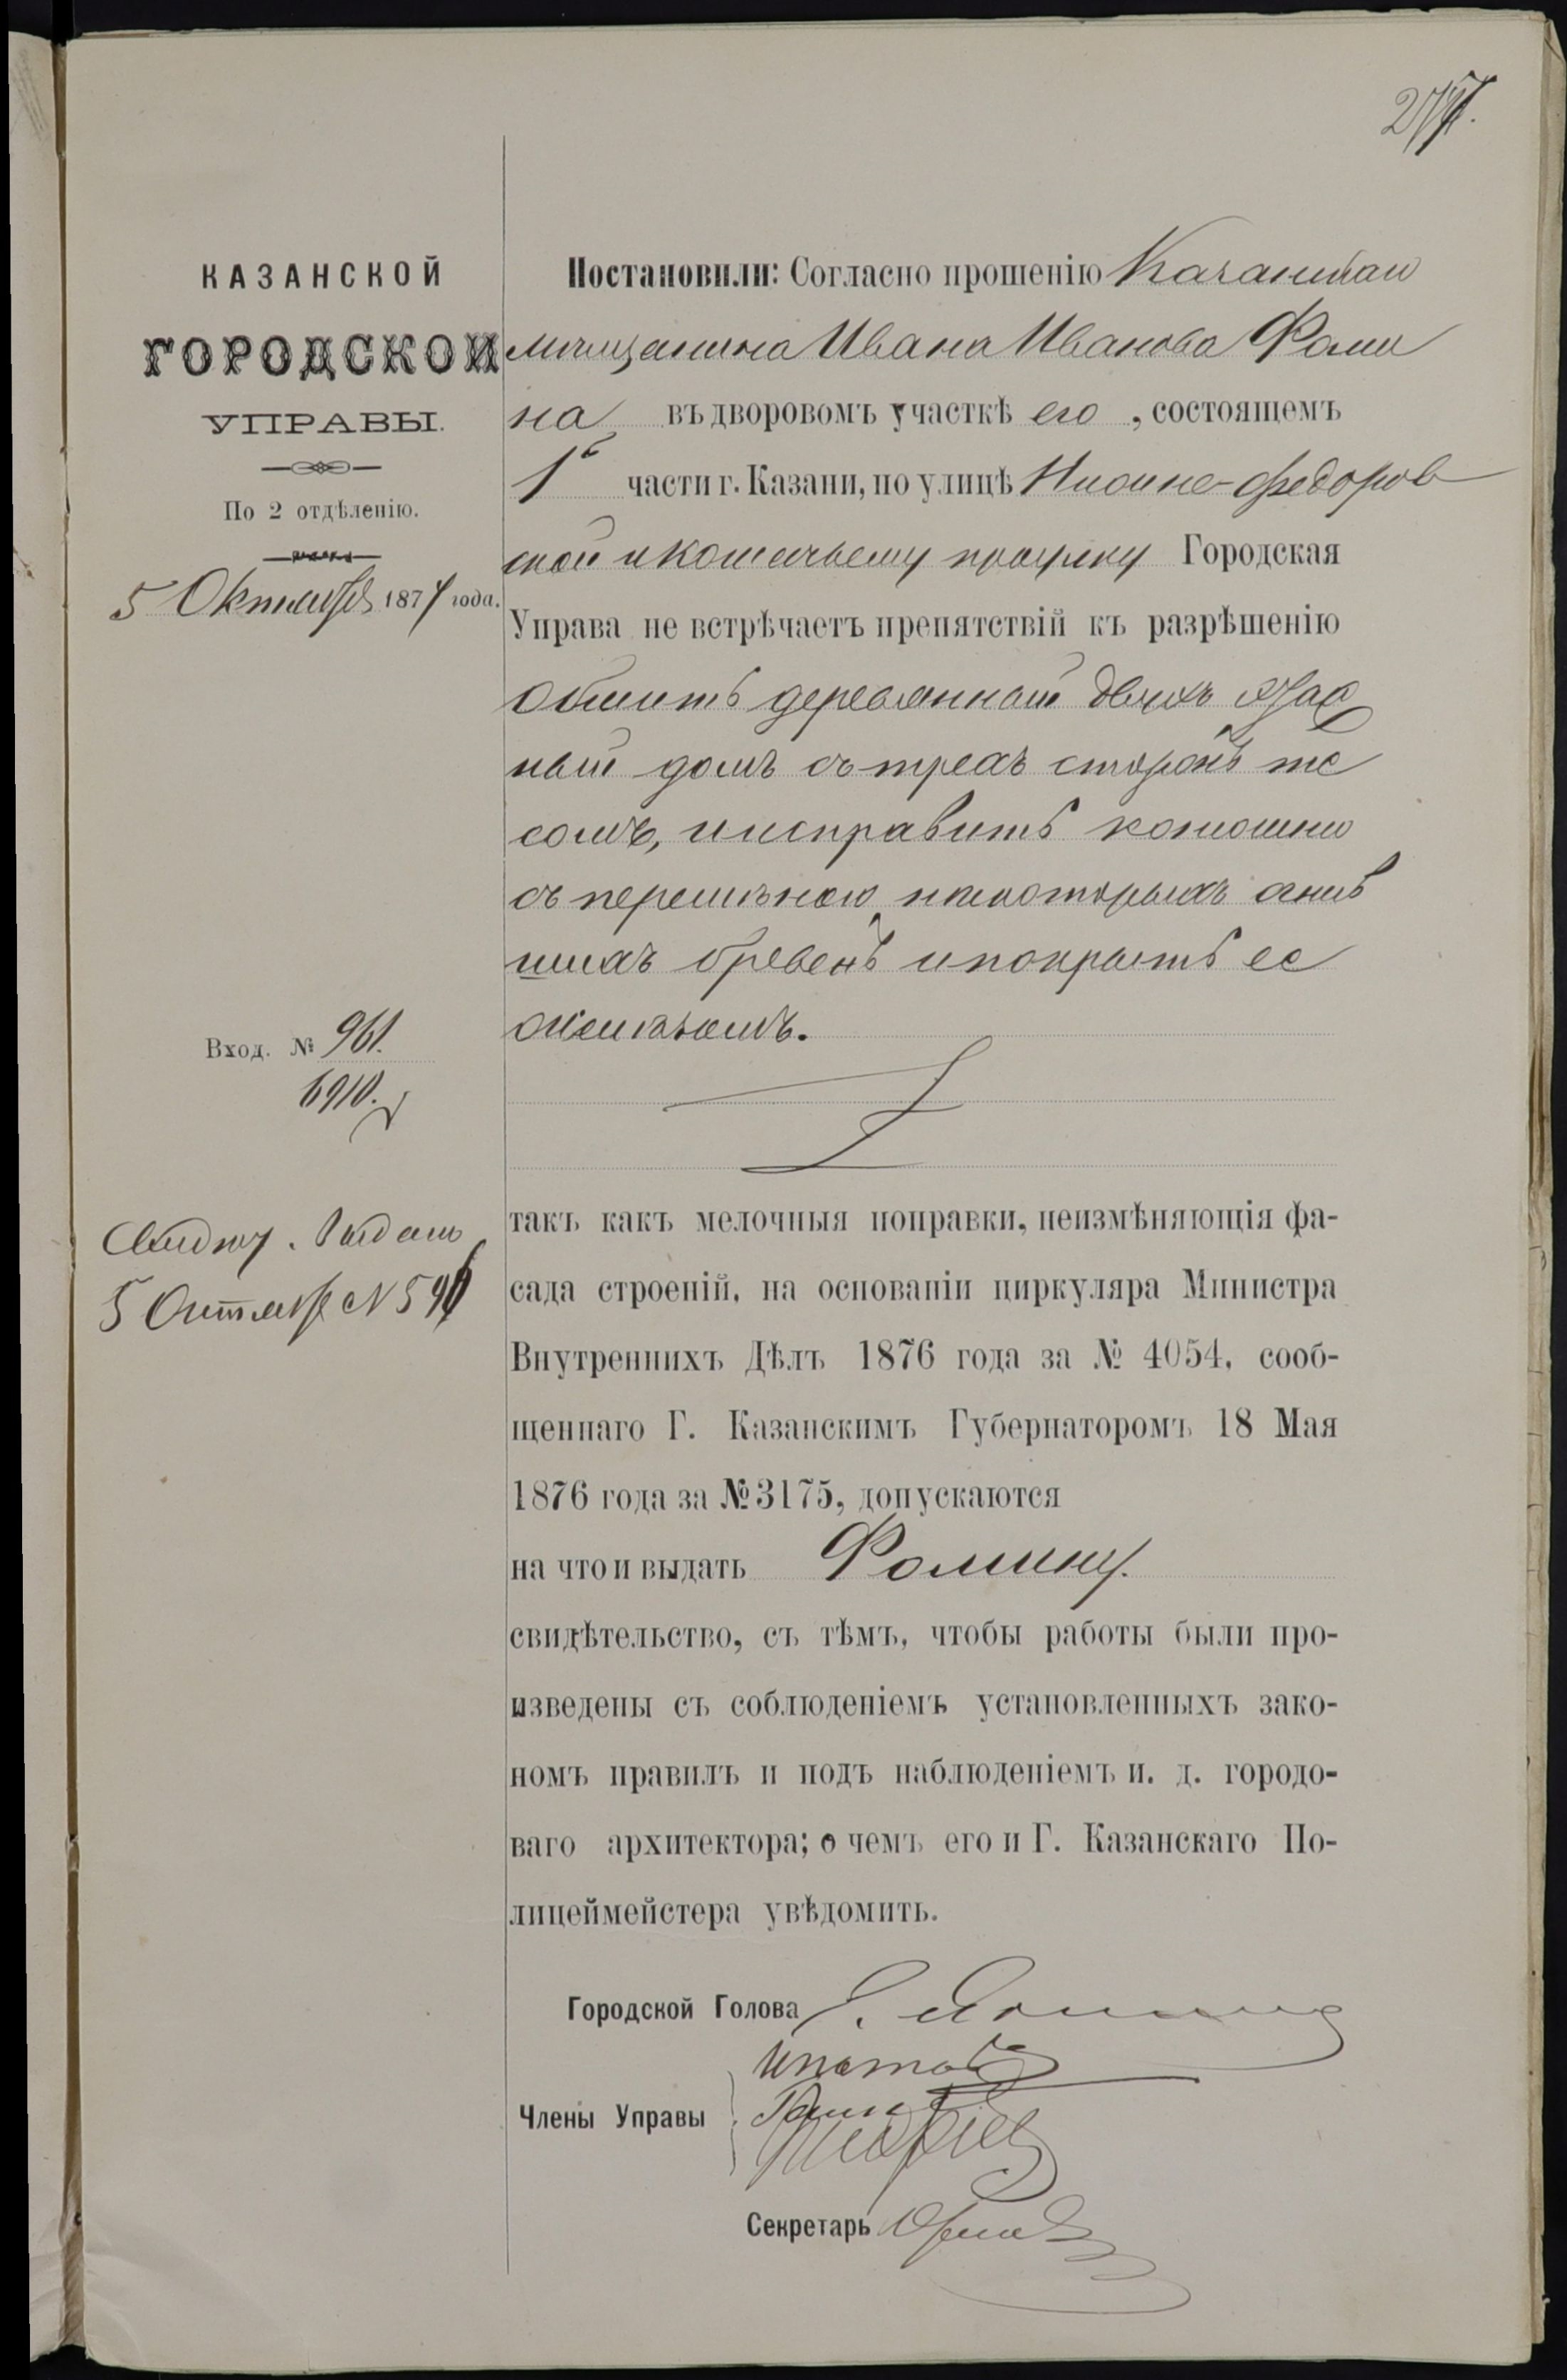 КАЗАНСКОЙ
ГОРОДСКОЙ
УПРАВЫ.
По 2 отдѣленію.
5 Октября 187 года.
Вход. № 961.
6910.
Выдано
5 Октября N
Постановили: Согласно прошенію Казанскаго
мѣщанина Ивана Иванова Фоми
на въ дворовомъ участкѣ его, состоящемъ
1й части г. Казани, по улицѣ Нижне-Федоров
ской и Кошачьему проулку Городская
Управа не встрѣчаетъ препятствій къ разрѣшенію
обшить деревянный двухъ этаж
ный домъ съ трехъ сторонъ те
сомъ, и исправить конюшню
съ перемѣною нѣкоторыхъ сгнив
шихъ бревенъ и покрыть ее
желѣзомъ.
такъ какъ мелочныя поправки, неизмѣняющія фа-
сада строеній, на основаніи циркуляра Министра
Внутреннихъ Дѣлъ 1876 года за № 4054, сооб-
щеннаго Г. Казанскимъ Губернаторомъ 18 Мая
1876 года за № 3175, допускаются
на что и выдать Фомину.
свидѣтельство, съ тѣмъ, чтобы работы были про-
изведены съ соблюденіемъ установленныхъ зако-
номъ правилъ и подъ наблюденіемъ и. д. городо-
ваго архитектора; о чемъ его и Г. Казанскаго По-
лицеймейстера увѣдомить.
Городской Голова
Ипатовъ
Члены Управы
Секретарь